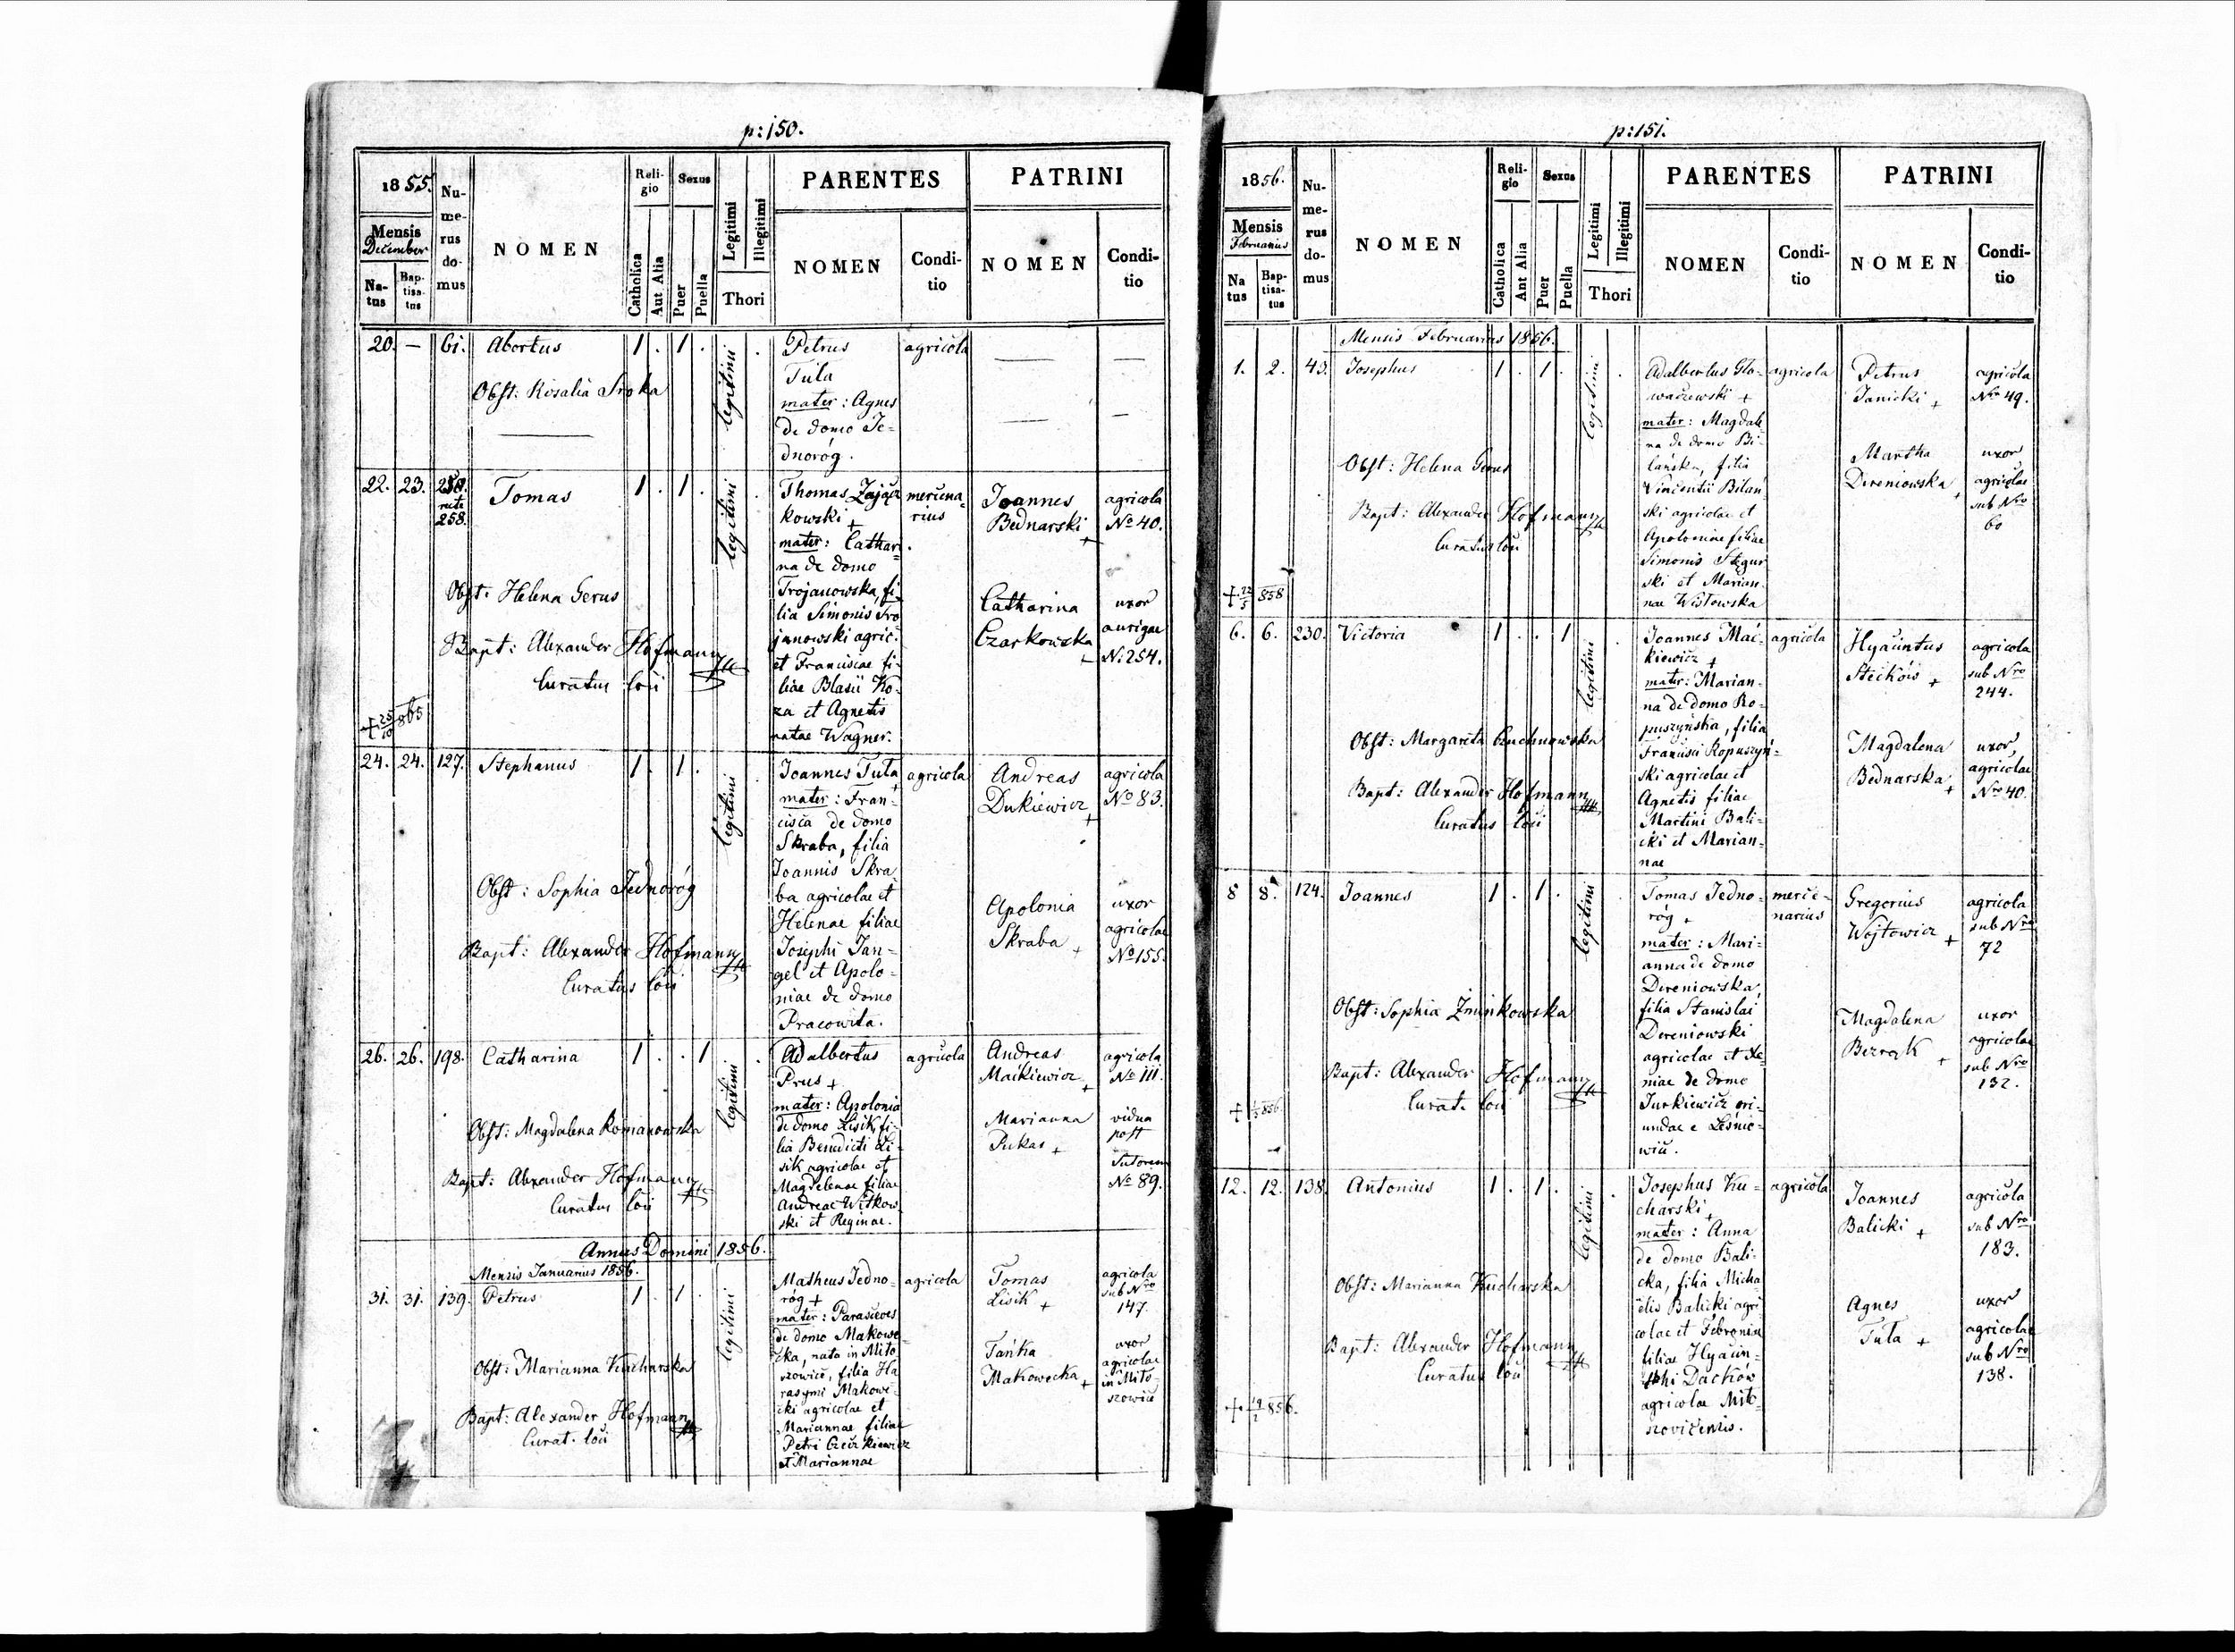 p: 150.
1855.
Mensis
December
Na-
tus
Bap-
tisa-
tus
Nu-
me-
rus
do-
mus
NOMEN
Reli-
gio
Catholica
Aut Alia
Sexus
Puer
Puella
Legitimi
Illegitimi
Thori
PARENTES
NOMEN
Condi-
tio
PATRINI
NOMEN
Condi-
tio
20. — 61. Abortus 1 . 1 .
legitimi
Obst: Rosalia Sroka
Petrus
Tuła
mater: Agnes
de domo Je-
dnoróg.
agricola
22. 23. 258.
recte
258.
Tomas 1 . 1 .
legitimi
Obst: Helena Gerus
Bapt: Alexander Hofmann
Curatus loci
+ 25/10 865
Thomas Zającz
kowski +
mater: Cathari-
na de domo
Trojanowska, fi-
lia Simonis Tro
janowski agric.
et Franciscae fi-
liae Blasii Ko-
za et Agnetis
natae Wagner.
mercena-
rius
Joannes
Bednarski +
agricola
No 40.
Catharina
Czarkowska +
uxor
aurigae
No 254.
24. 24. 127. Stephanus 1 . 1 .
legitimi
Obst: Sophia Jednoróg
Bapt: Alexander Hofmann
Curatus loci
Joannes Tuła +
mater: Fran-
cisca de domo
Skraba, filia
Joannis Skra
ba agricolae et
Helenae filiae
Josephi Jan-
gel et Apolo-
niae de domo
Pracowita.
agricola
Andreas
Dukiewicz +
agricola
No 83.
Apolonia
Skraba +
uxor
agricolae
No 155.
26. 26. 198. Catharina 1 . . 1
legitimi
Obst: Magdalena Romanowska
Bapt: Alexander Hofmann
Curatus loci
Adalbertus
Prus +
mater: Apolonia
de domo Lisik, fi-
lia Benedicti Li-
sik agricolae et
Magdalenae filiae
Andreae Witkow
ski et Reginae.
agricola
Andreas
Maćkiewicz +
agricola
No 111.
Marianna
Pukas +
vidua
post
Sutorem
No 89.
Annus Domini 1856.
Mensis Januarius 1856.
31. 31. 139. Petrus 1 . 1 .
legitimi
Obst: Marianna Kucharska
Bapt: Alexander Hofmann
Curat. loci
Matheus Jedno-
róg +
mater: Parasceves
de domo Makowe-
cka, nata in Miło
szowice, filia Ha
rasymi Makowe-
cki agricolae et
Mariannae filiae
Petri
et Mariannae
agricola
Tomas
Lisik +
agricola
sub Nro
147.
Tańka
Makowecka +
uxor
agricolae
in Miło-
szowice
p: 151.
1856.
Mensis
Februarius
Na
tus
Bap-
tisa-
tus
Nu-
me-
rus
do-
mus
NOMEN
Reli-
gio
Catholica
Aut Alia
Sexus
Puer
Puella
Legitimi
Illegitimi
Thori
PARENTES
NOMEN
Condi-
tio
PATRINI
NOMEN
Condi-
tio
Mensis Februarius 1856.
1. 2. 43. Josephus 1 . 1 .
legitimi
Obst: Helena Gerus
Bapt: Alexander Hofmann
Curatus loci
+ 22/5 858
Adalbertus Gło-
waczewski +
mater: Magdale
na de domo Bi-
lańska, filia
Vincentii Bilań
ski agricolae et
Apoloniae filiae
Simonis Stęgur
ski et Marian-
nae Wisłowska
agricola
Petrus
Janicki +
agricola
Nro 49.
Martha
Dereniowska +
uxor
agricolae
sub Nro
60
6. 6. 230. Victoria 1 . . 1
legitimi
Obst: Margarita Czuchnowska
Bapt: Alexander Hofmann
Curatus loci
Joannes Mać-
kiewicz +
mater: Marian-
na de domo Ko-
puszyńska, filia
Francisci Kopuszyń-
ski agricolae et
Agnetis filiae
Martini Bali-
cki et Marian-
nae
agricola
Hyacintus
Stećków +
agricola
sub Nro
244.
Magdalena
Bednarska +
uxor,
agricolae
Nro 40.
8 8. 124. Joannes 1 . 1 .
legitimi
Obst: Sophia Żminkowska
Bapt: Alexander Hofmann
Curat. loci
Tomas Jedno-
róg +
mater: Mari-
anna de domo
Dereniowska,
filia Stanislai
Dereniowski
agricolae et Xe
niae de domo
Jurkiewicz ori-
undae e Leśnio-
wicz.
merce-
narius
Gregorius
Wojtowicz +
agricola
sub Nro
72
Magdalena
Bezrąk +
uxor
agricolae
sub Nro
132.
12. 12. 138. Antonius 1 . 1 .
legitimi
Obst: Marianna Kucharska
Bapt: Alexander Hofmann
Curatus loci
+ 19/2 856.
Josephus Ku-
charski +
mater: Anna
de domo Bali-
cka, filia Micha
elis Balicki agri
colae et Febroniae
filiae Hyacin-
thi Daćków
agricolae Miło-
szovicensis.
agricola
Joannes
Balicki +
agricola
sub Nro
183.
Agnes
Tuła +
uxor
agricolae
sub Nro
138.